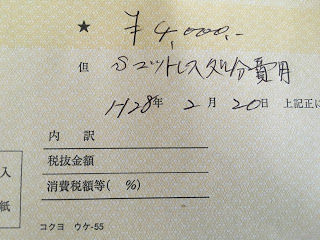 ★ ¥4,000.-
但 Sマットレス処分費用
H28年 2月 20日 上記正に
内 訳
税抜金額
消費税額等( %)
入
紙
コクヨ ウケ-55